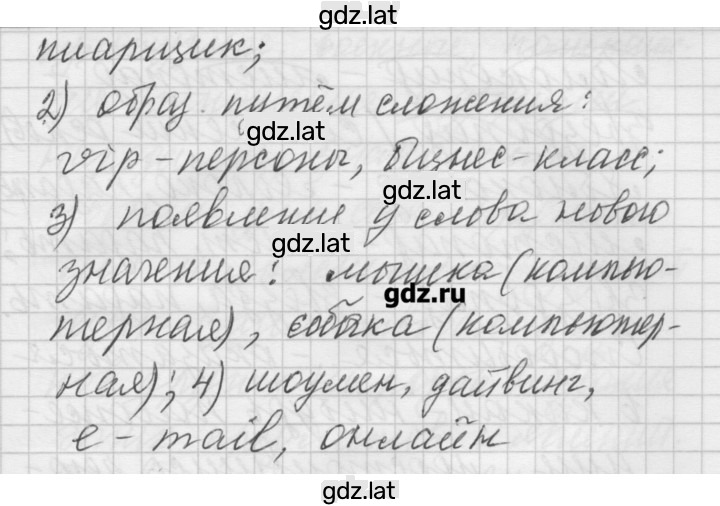 gdz.lat
пиарщик;
2) образ. путём сложения:
gdz.lat
vip-персоны, бизнес-класс;
gdz.lat
3) появление у слова нового
gdz.lat
значения: мышка (компью-
gdz.ru
терная), собака (компьютер-
ная); 4) шоумен, дайвинг,
gdz.lat
e-mail, онлайн
gdz.lat